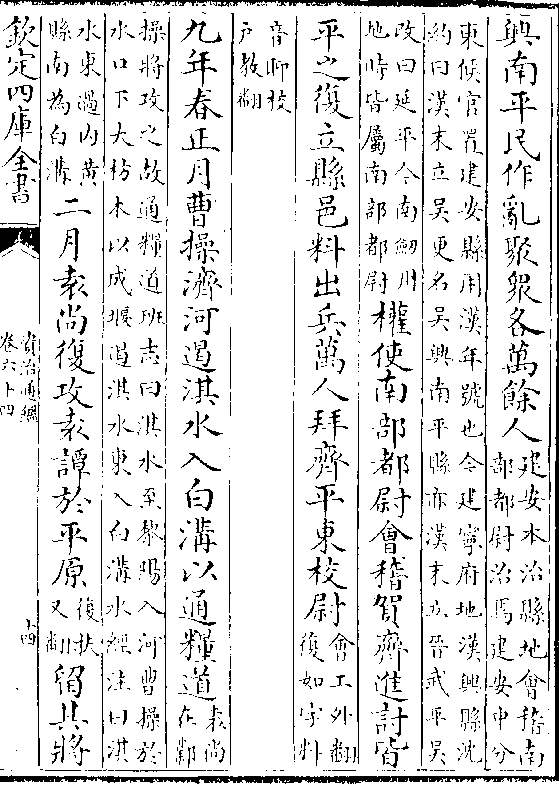 興南平民作亂聚衆各萬餘人
建安本治縣地會稽南
部都尉治焉建安中分
東候官置建安縣用漢年號也今建寧府地漢興縣沈
約曰漢末立吳更名吳興南平縣亦漢末立晉武平吳
改曰延平今南劒州
地時皆屬南部都尉
權使南部都尉會稽賀齊進討皆
平之復立縣邑料出兵萬人拜齊平東校尉
會工外翻
復如字料
音聊校
戶教翻
九年春正月曹操濟河遏淇水入白溝以通糧道
袁尚
在鄴
操將攻之故通糧道班志曰淇水至黎陽入河曹操於
水口下大枋木以成堰遏淇水東入白溝水經注曰淇
水東過內黃
縣南為白溝
二月袁尚復攻袁譚於平原
復扶
又翻
留其將
欽定四庫全書
資治通鑑
卷六十四
十四